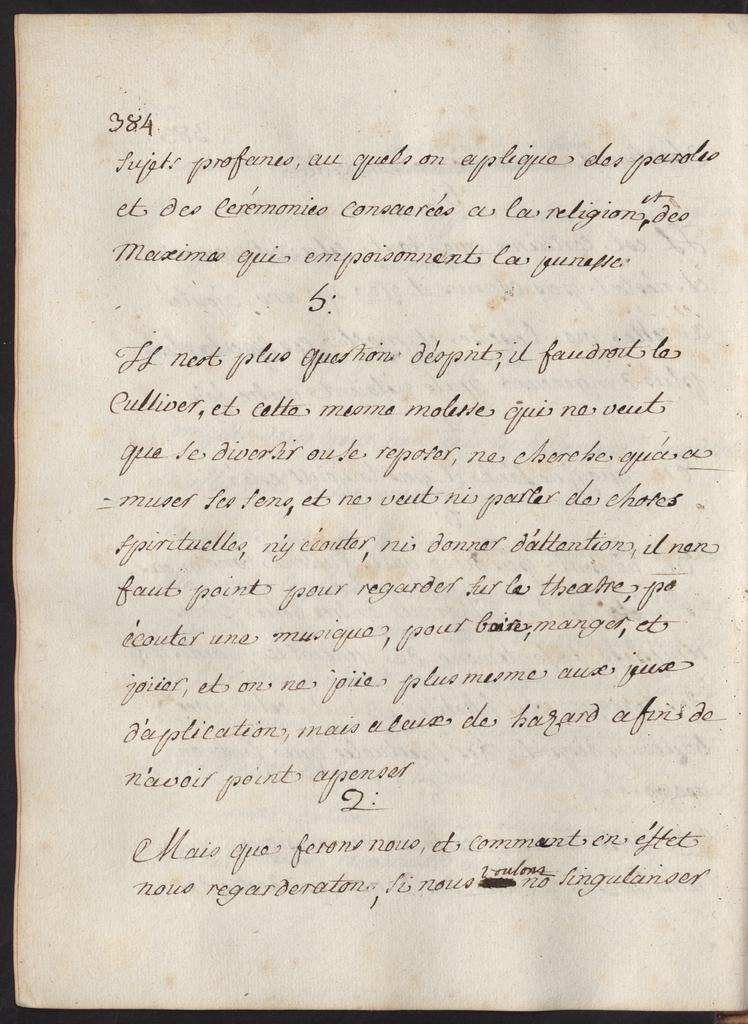 384
sujets profanes, au quels on aplique des paroles
et des Cerémonies Consacrées a la religion, et des
Maximes qui empoisonnent la junesse
5:
Il nest plus question desprit, il faudroit le
Culliver, et cette mesme molesse qui ne veut
que se divertir ou se reposer, ne cherche qu'a a
=muser ses sens, et ne veut ni parler de choses
spirituelles, n'y écouter, ni donner d'attention, il nen
faut point pour regarder sur le theatre, po
écouter une musique, pour boire, manger, et
joüer, et on ne joüe plus mesme aux jeux
d'aplication, mais a ceux de hazard afin de
n'avoir point apenser
2:
Mais que ferons nous, et comment en éffet
nous regarderaton, si nous voulons no singulariser